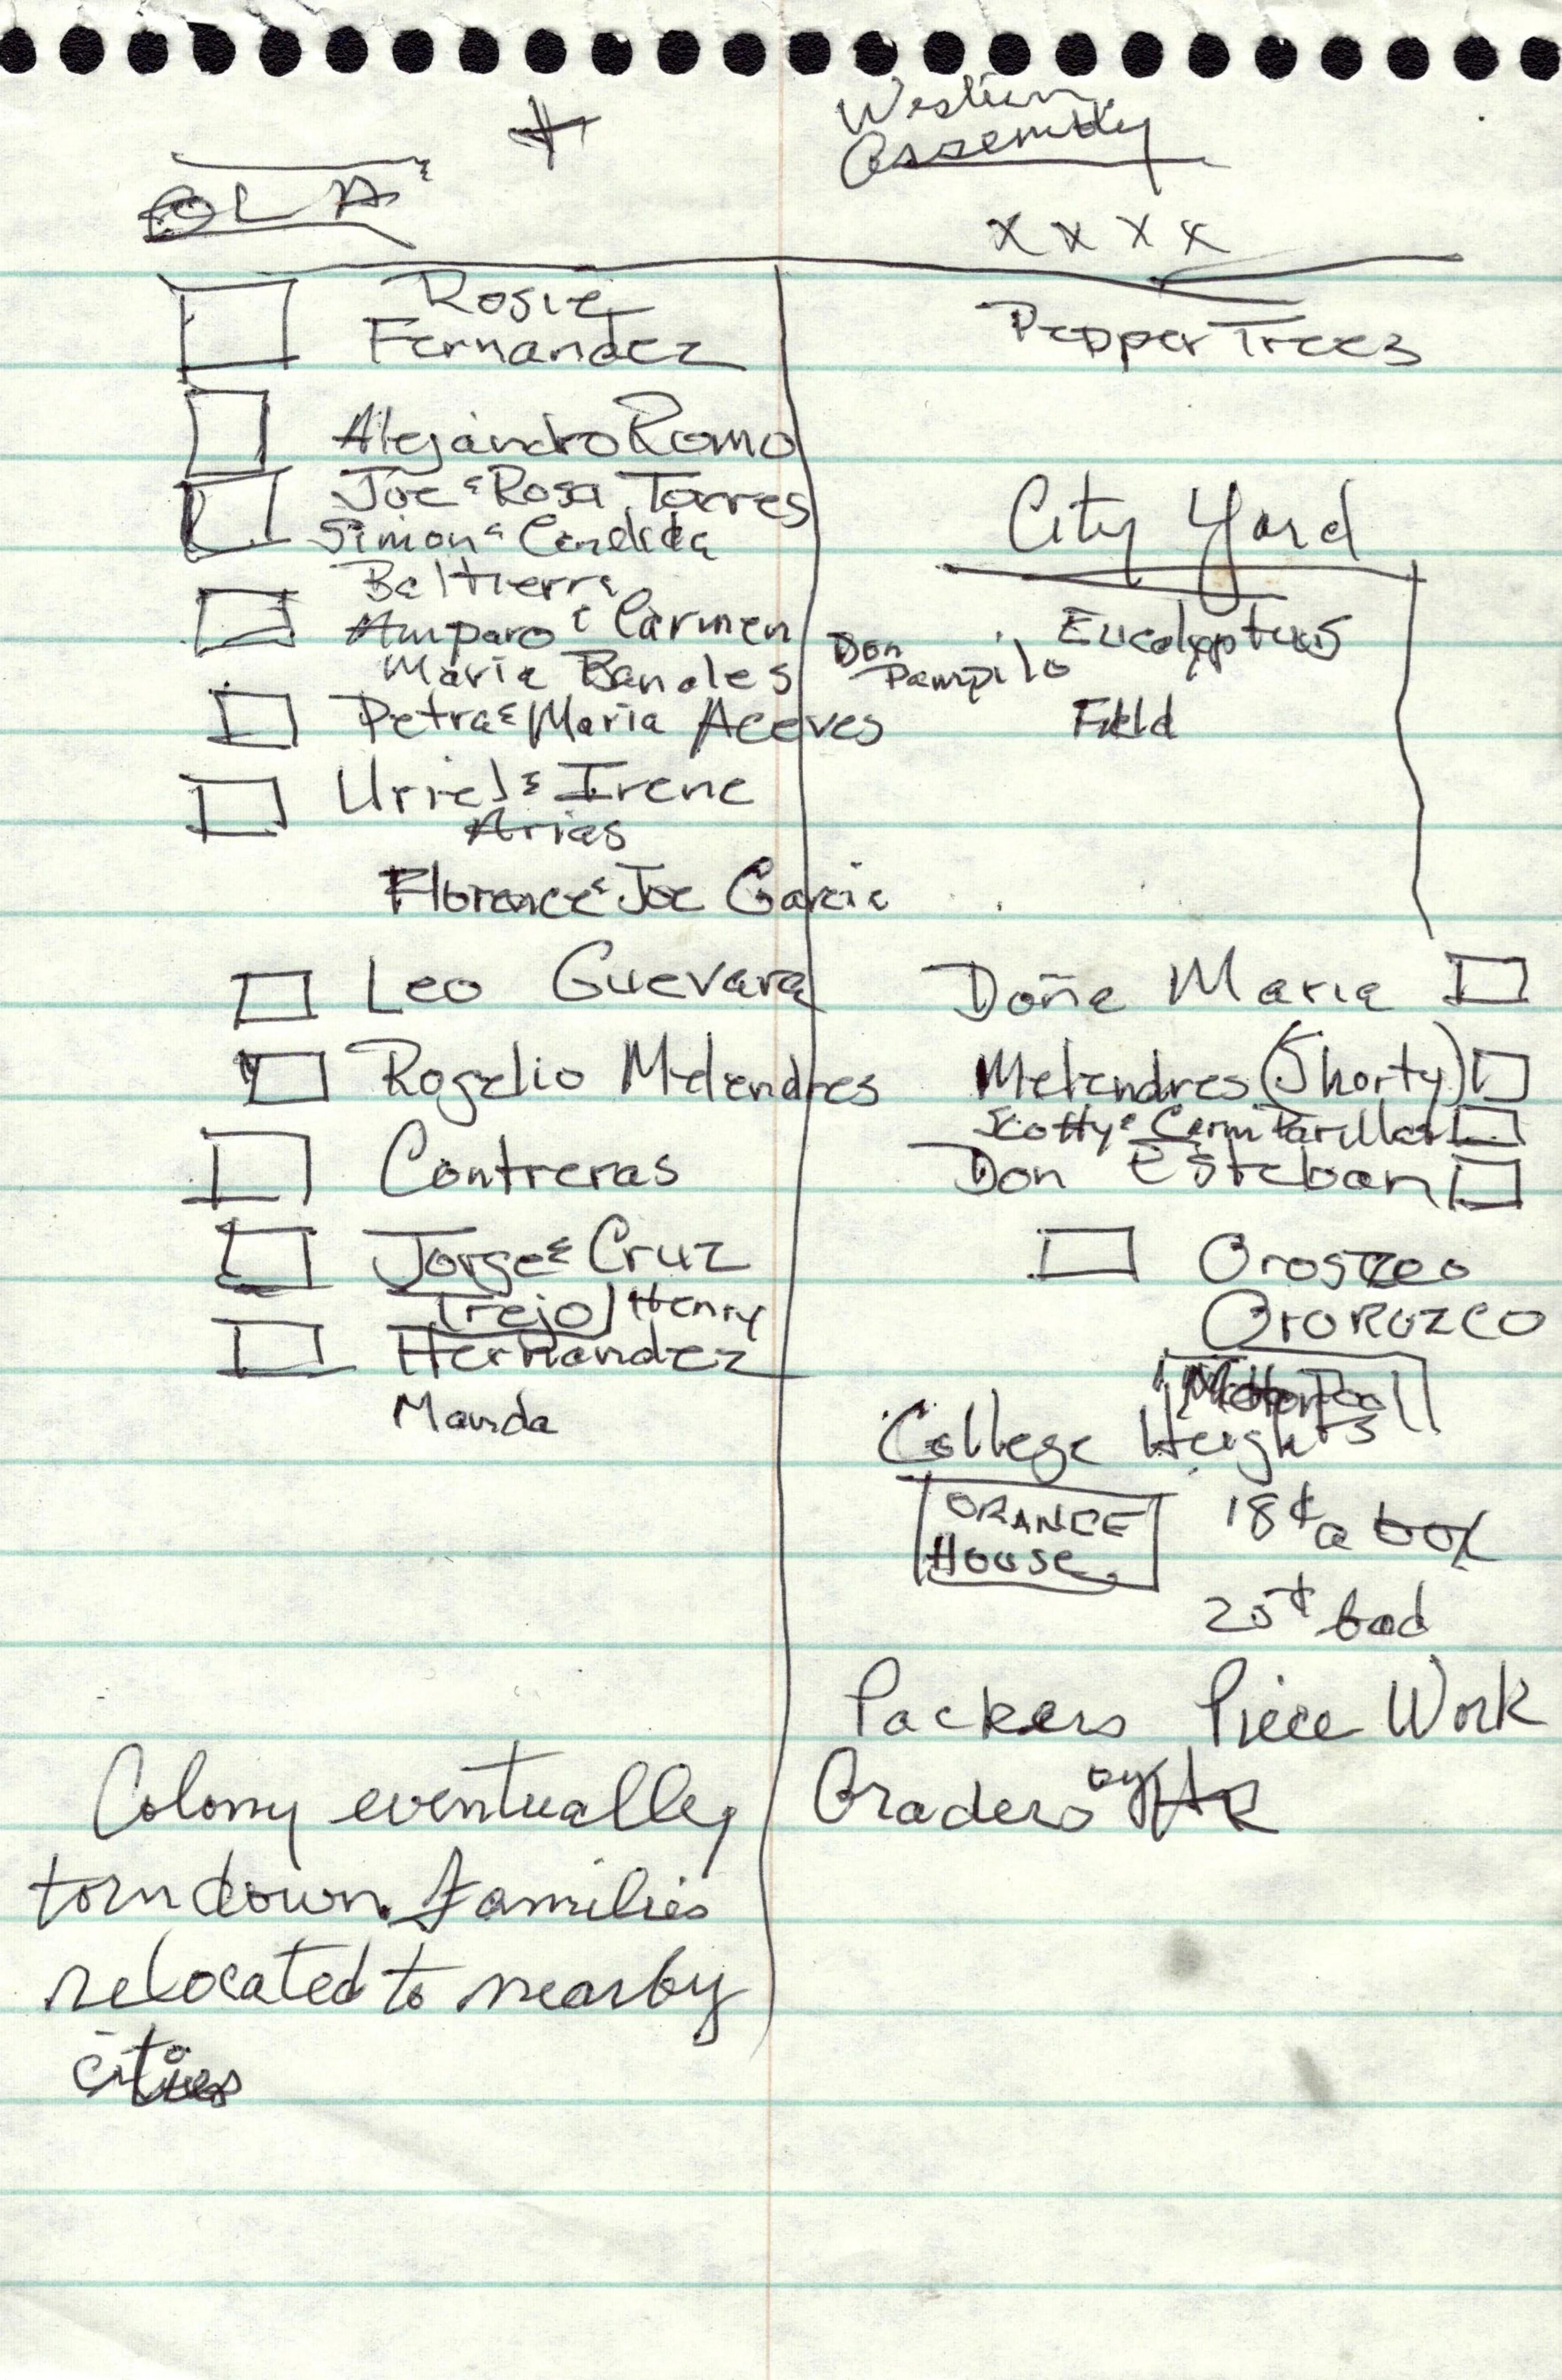 Western
Assembly
OLA
x x x x
Rosie
Fernandez
Pepper Trees
Alejandro Romo
Joe & Rosa Torres
Simon & Candida
Beltierra
City Yard
Amparo & Carmen
Maria Banales
Don
Pampilo
Eucalyptus
Field
Petra & Maria Aceves
Uriel & Irene
Arias
Florence & Joe Garcia
Leo Guevara
Doña Maria
Rogelio Melendres
Melendres (Shorty)
Scotty & Carm Parilla
Contreras
Don Esteban
Jorge & Cruz
Trejo / Henry
Oroszco
Ororozco
Hernandez
Manda
Motor Pool
College Heights
ORANGE
House
18¢ a box
25¢ bad
Packers Piece Work
Graders by HR
Colony eventually
torn down. families
relocated to nearby
cities